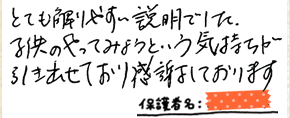 とても解りやすい説明でした。
子供のやってみようという気持ちが
引き出せており感謝しております
保護者名: